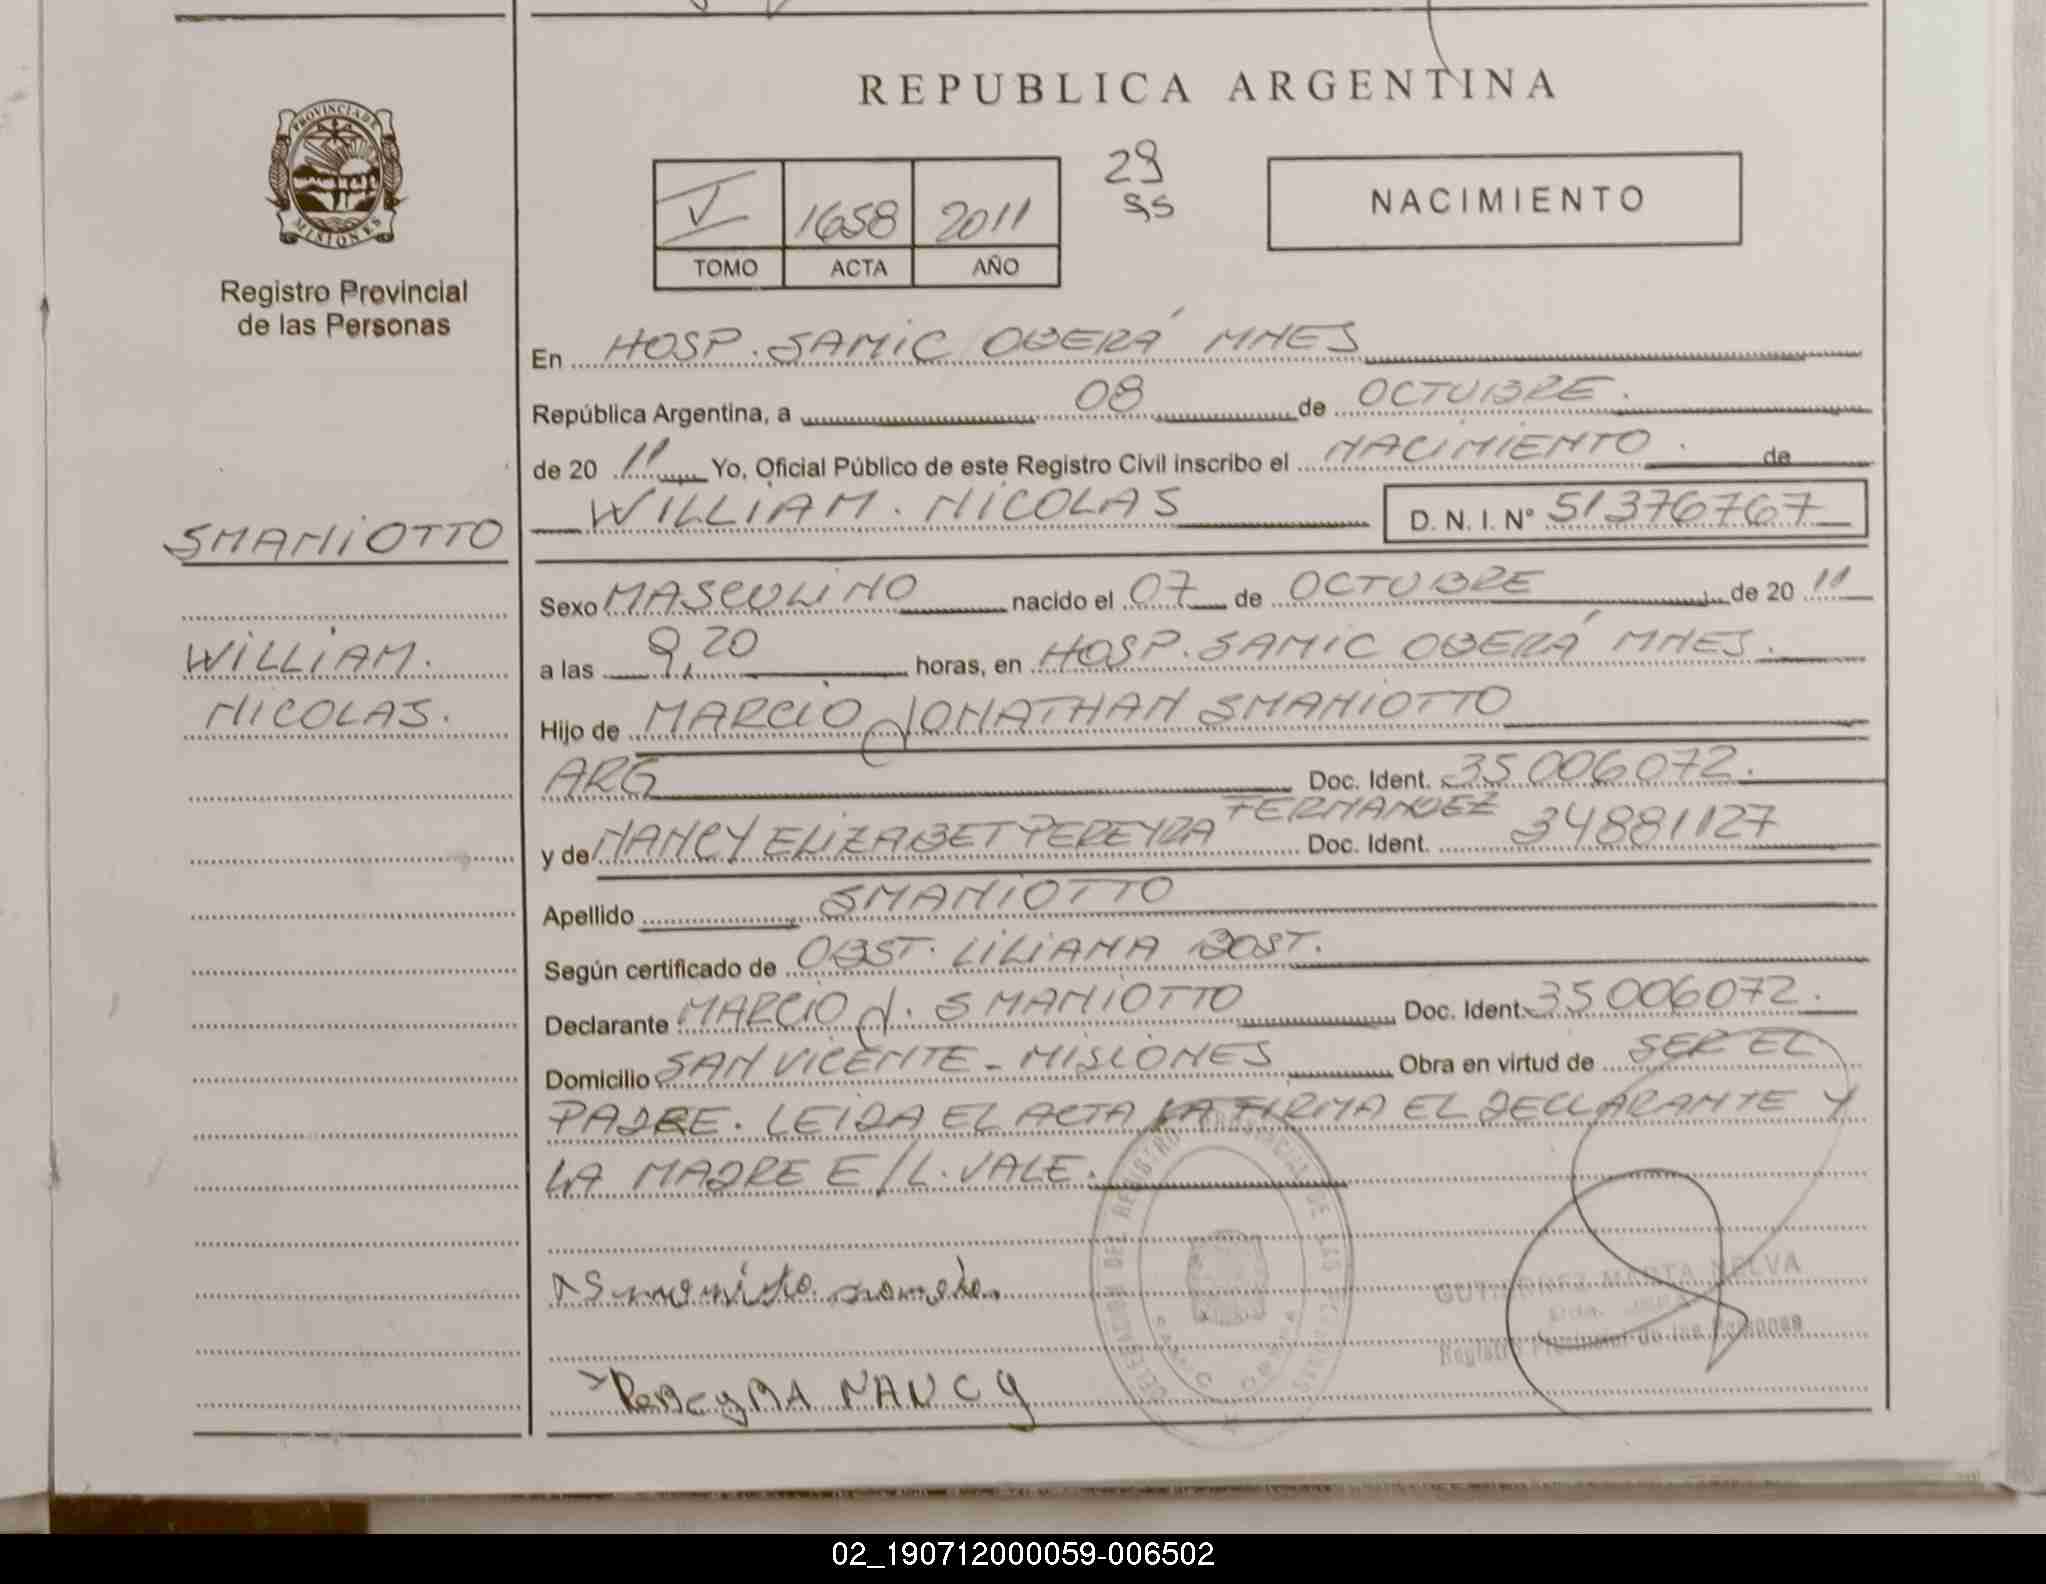 REPUBLICA ARGENTINA
PROVINCIA DE MISIONES
Registro Provincial
de las Personas
V 1658 2011
TOMO ACTA AÑO
29
NACIMIENTO
En HOSP. SAMIC OBERÁ MNES
República Argentina, a 08 de OCTUBRE.
de 20 11 Yo, Oficial Público de este Registro Civil inscribo el NACIMIENTO. de
WILLIAM. NICOLAS D. N. I. Nº 51376767
SMANIOTTO
WILLIAM.
NICOLAS.
Sexo MASCULINO nacido el 07 de OCTUBRE de 20 11
a las 9,20 horas, en HOSP. SAMIC OBERÁ MNES.
Hijo de MARCIO JONATHAN SMANIOTTO
ARG Doc. Ident. 35006072.
FERNANDEZ
y de NANCY ELIZABET PEREYRA Doc. Ident. 34881127
Apellido SMANIOTTO
Según certificado de OBST. LILIANA BOST.
Declarante MARCIO J. SMANIOTTO Doc. Ident. 35006072.
Domicilio SAN VICENTE - MISIONES Obra en virtud de SER EL
PADRE. LEIDA EL ACTA LA FIRMA EL DECLARANTE Y
LA MADRE E/L. VALE.
NANCY
DELEGACION DEL REGISTRO PROVINCIAL DE LAS PERSONAS
GUTIERREZ MARTA NELVA
Registro Provincial de las Personas
02_190712000059-006502